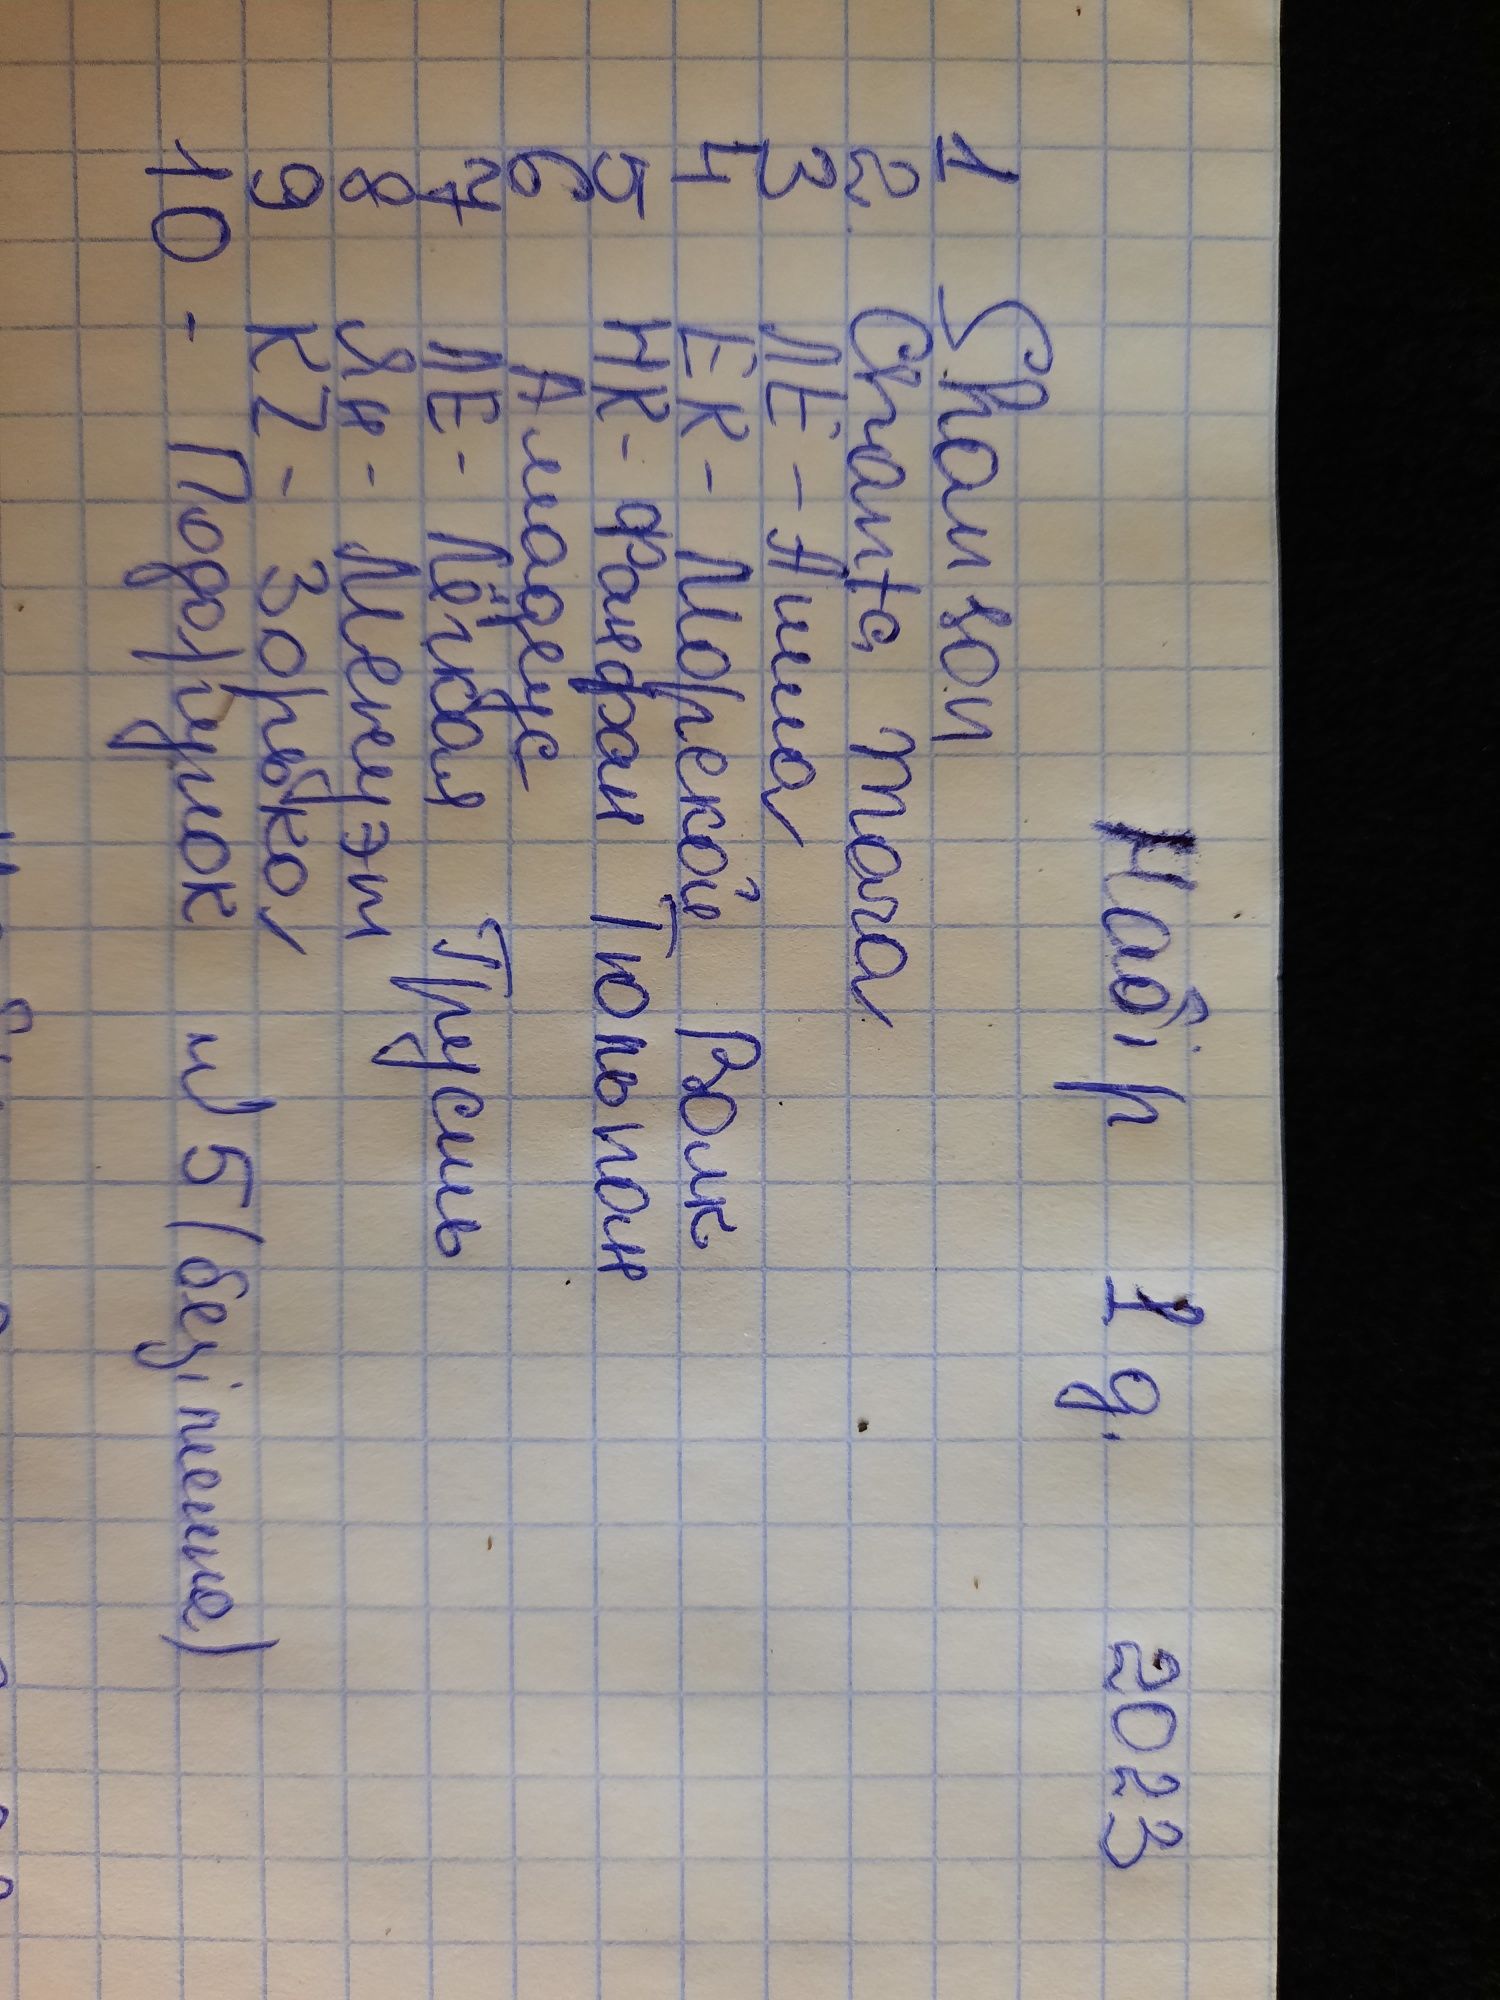 Набір 1д. 2023
1 Shanson
2. Chanta Mara
3 ЛЕ - Анша
4 ЕК - Морской Волк
5 НК - Фанфан Тюльпан
6 Амадеус
7 ЛЕ - Лёгкая Грусть
8 Ян - Менуэт
9 KZ - Зорька
10 - Подарунок №5 (безіменна)